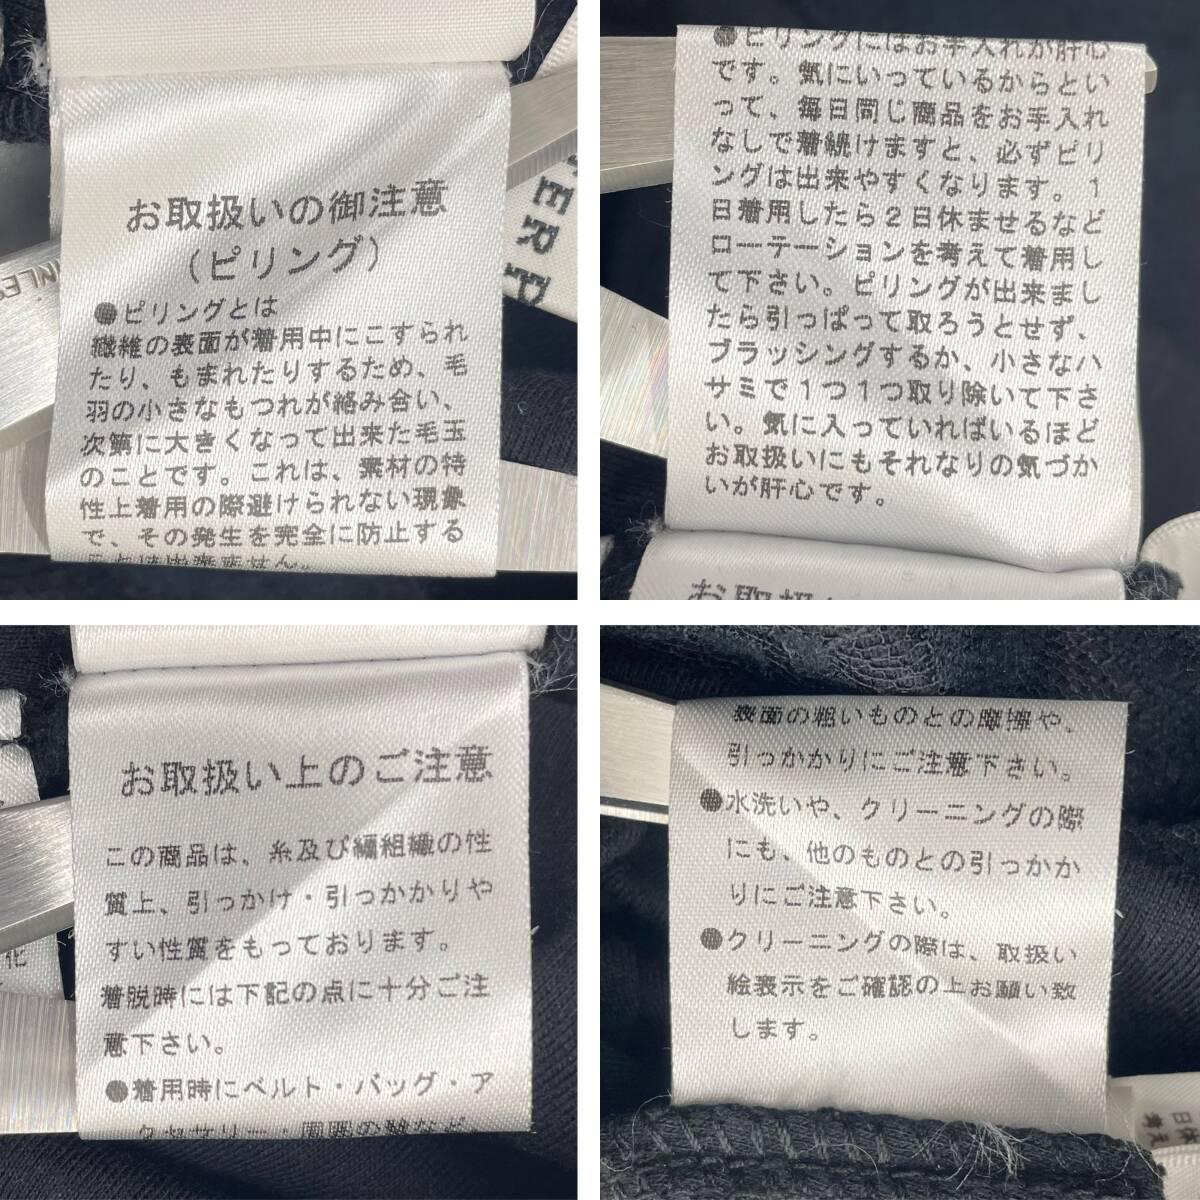 お取扱いの御注意
(ピリング)
●ピリングとは
繊維の表面が着用中にこすられ
たり、もまれたりするため、毛
羽の小さなもつれが絡み合い、
次第に大きくなって出来た毛玉
のことです。これは、素材の特
性上着用の際避けられない現象
で、その発生を完全に防止する
●ピリングにはお手入れが肝心
です。気にいっているからとい
って、毎日同じ商品をお手入れ
なしで着続けますと、必ずピリ
ングは出来やすくなります。1
日着用したら2日休ませるなど
ローテーションを考えて着用し
て下さい。ピリングが出来まし
たら引っぱって取ろうとせず、
ブラッシングするか、小さなハ
サミで1つ1つ取り除いて下さ
い。気に入っていればいるほど
お取扱いにもそれなりの気づか
いが肝心です。
お取扱い上のご注意
この商品は、糸及び編組織の性
質上、引っかけ・引っかかりや
すい性質をもっております。
着脱時には下記の点に十分ご注
意下さい。
●着用時にベルト・バッグ・ア
クセサリー・
表面の粗いものとの摩擦や、
引っかかりにご注意下さい。
●水洗いや、クリーニングの際
にも、他のものとの引っかか
りにご注意下さい。
●クリーニングの際は、取扱い
絵表示をご確認の上お願い致
します。